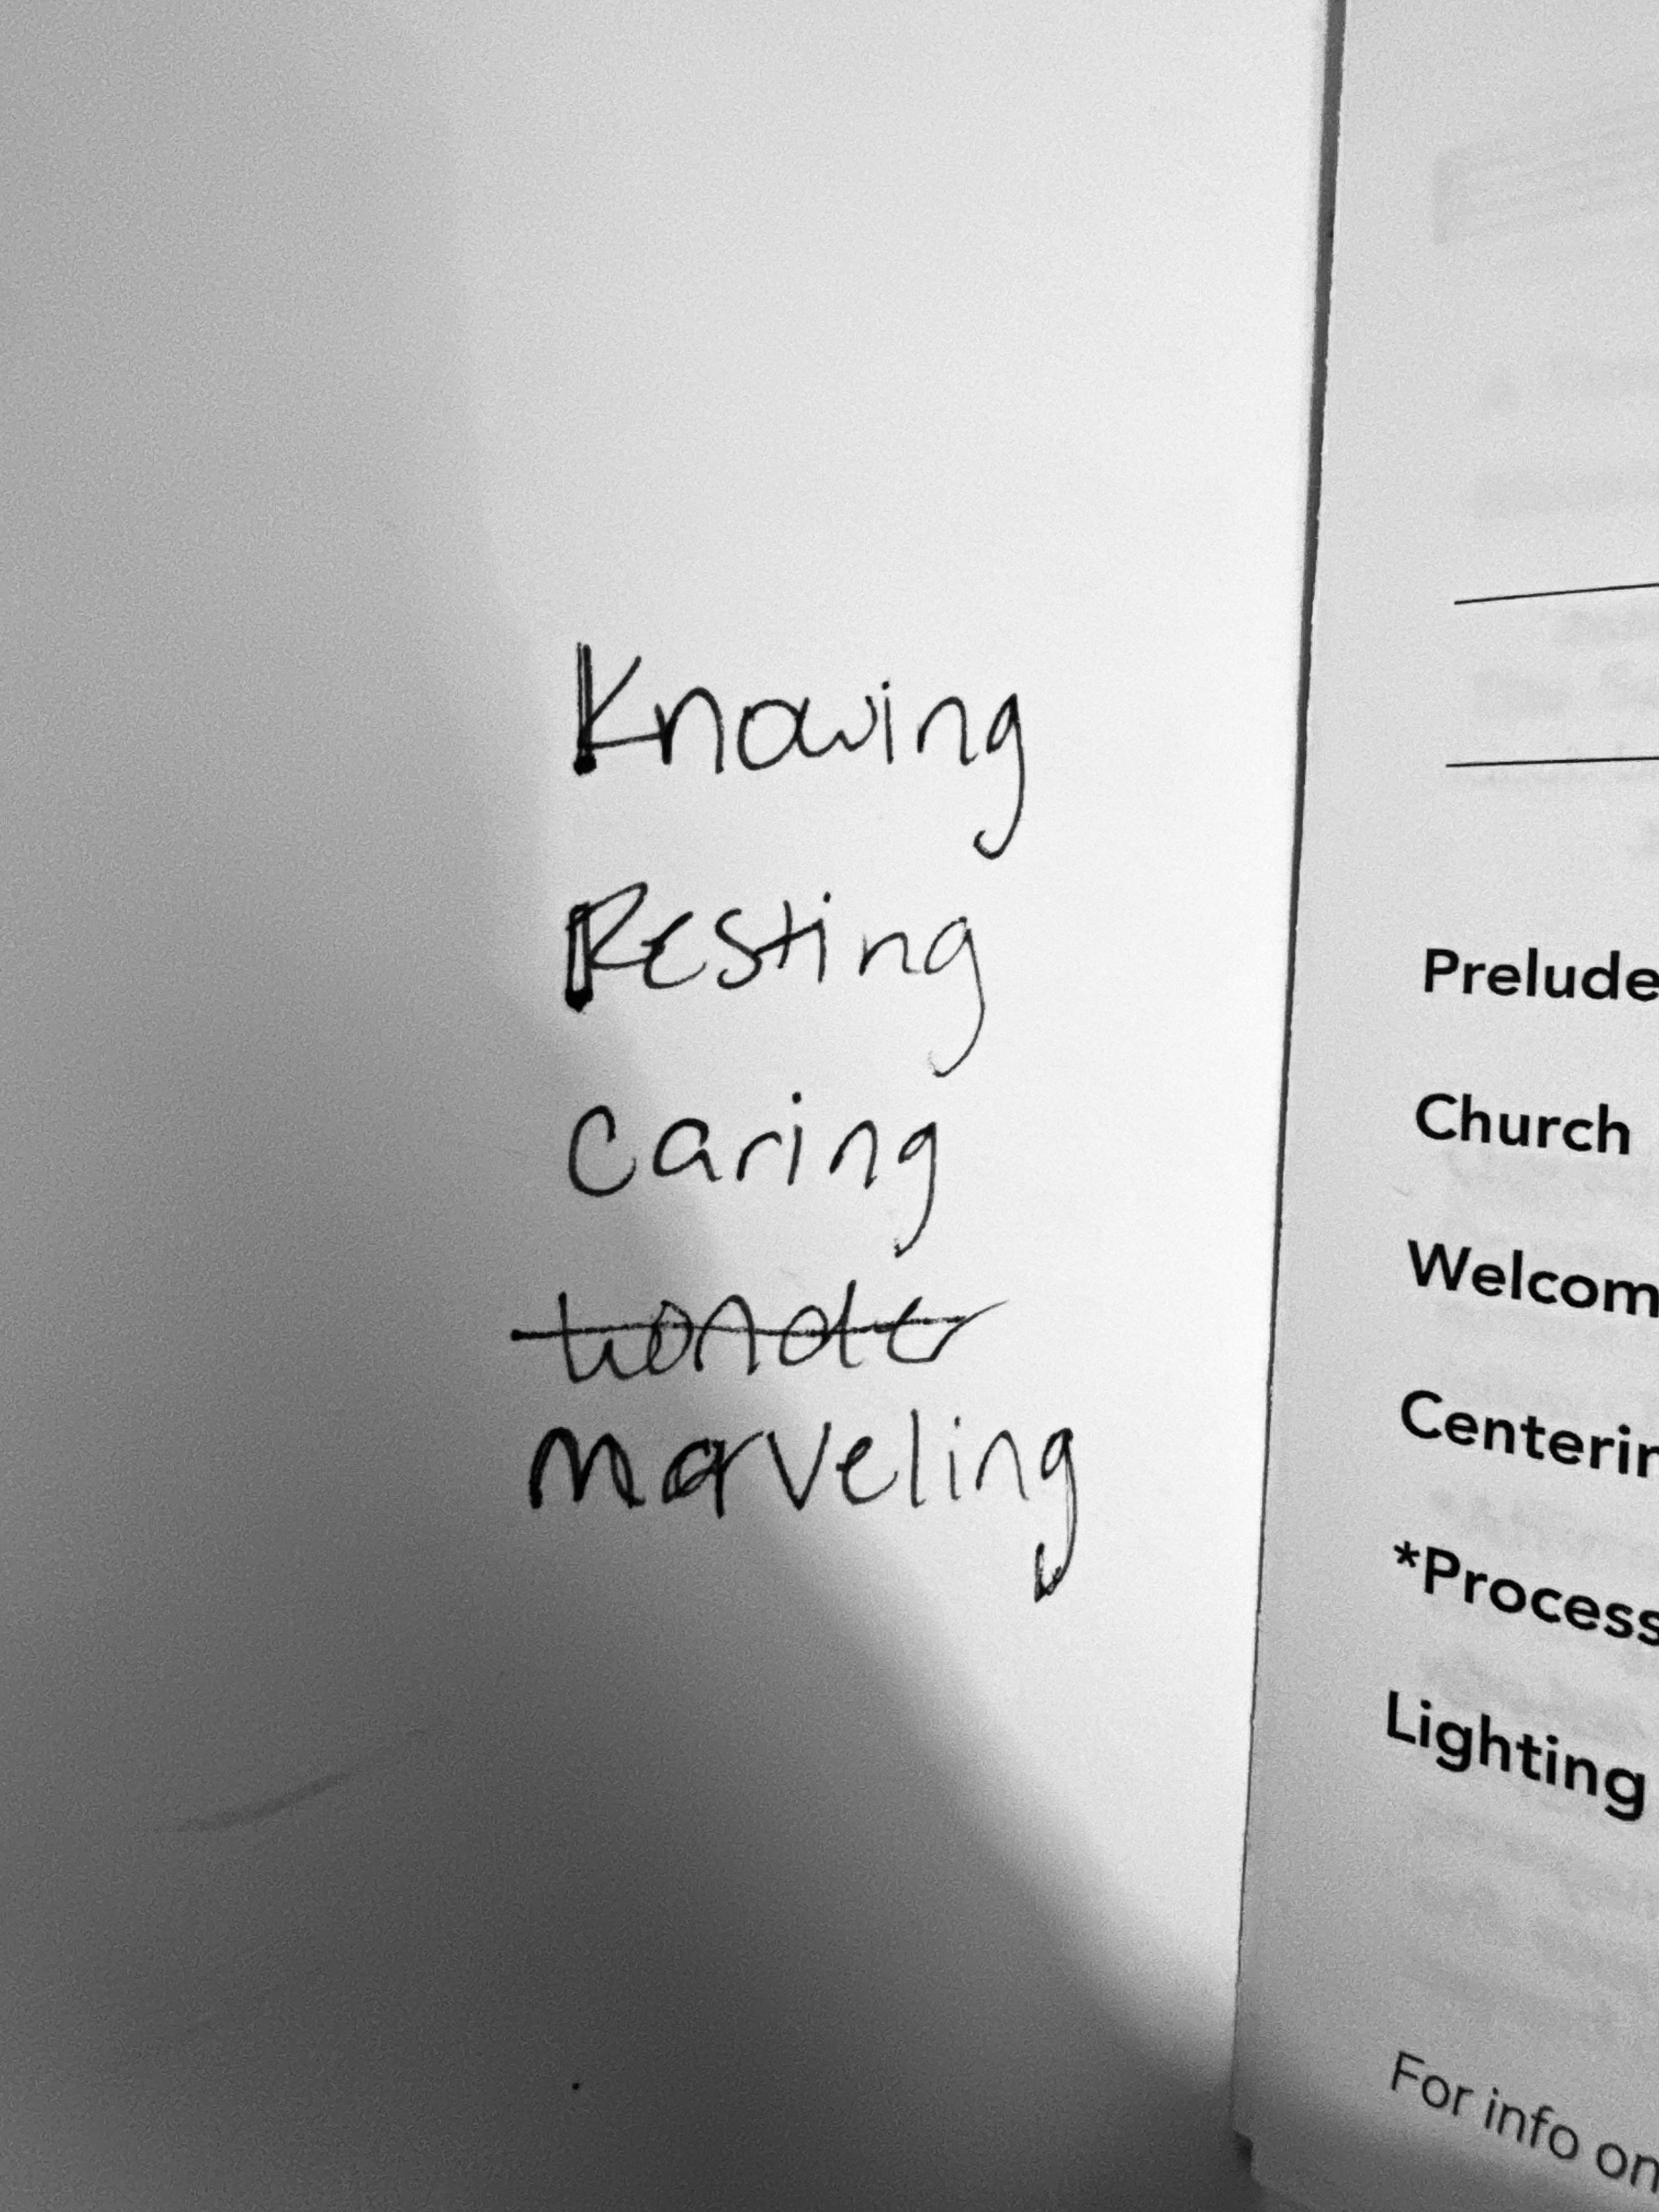 Knowing
Resting
Caring
wonder
marveling
Prelude
Church
Welcom
Centerin
*Process
Lighting
For info on